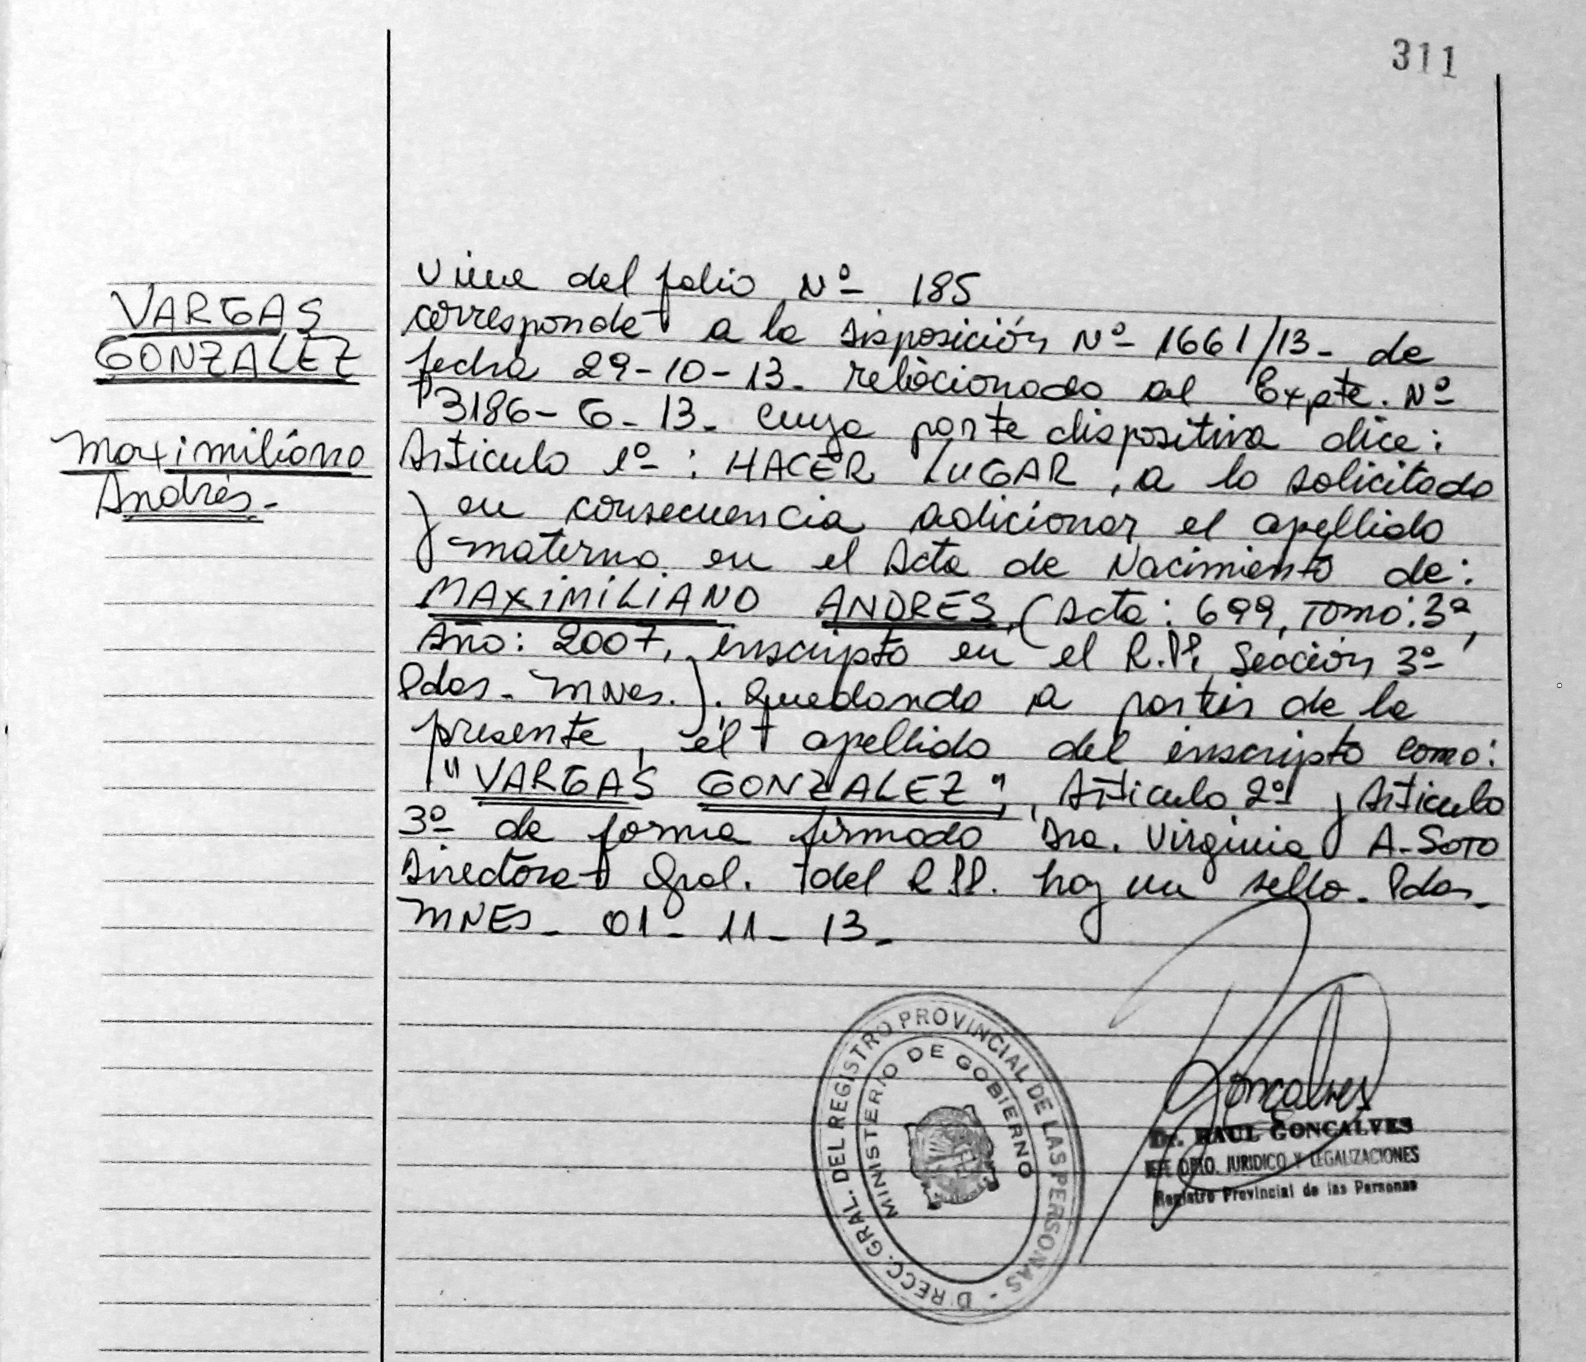 311
VARGAS
GONZALEZ
Maximiliano
Andrés.-
Viene del folio Nº 185
corresponde a la Disposición Nº 1661/13- de
fecha 29-10-13- relacionado al Expte. Nº
3186-G-13- cuya parte dispositiva dice:
Articulo 1º: HACER LUGAR, a lo solicitado
y en consecuencia adicionar el apellido
materno en el Acta de Nacimiento de:
MAXIMILIANO ANDRES, (Acta: 699, Tomo: 3º,
Año: 2007, inscripto en el R.P.P. Sección 3º
Pdas- MNes.). Quedando a partir de la
presente, el apellido del inscripto como:
"VARGAS GONZALEZ", Articulo 2º y Articulo
3º de forma firmado Dra. Virginia A-SOTO
Directora Gral. del RPP. hay un sello- Pdas-
MNES- 01-11-13-
DIRECC. GRAL. DEL REGISTRO PROVINCIAL DE LAS PERSONAS -
MINISTERIO DE GOBIERNO
Gonçalves
Dr. RAUL GONCALVES
JEFE DPTO. JURIDICO Y LEGALIZACIONES
Registro Provincial de las Personas